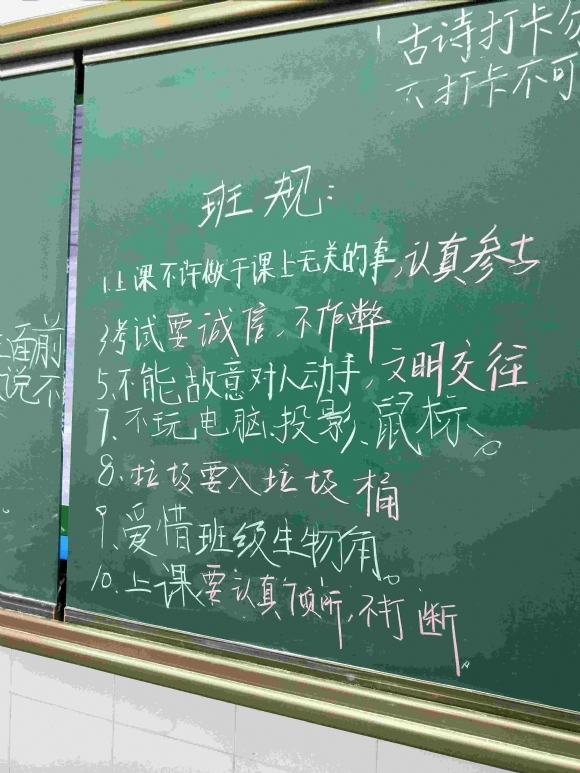 1 古诗打卡
六打卡不可
班规:
1.上课不许做于课上无关的事,认真参与
考试要诚信,不作弊
5.不能故意对人动手,文明交往
7.不玩电脑、投影、鼠标。
8.垃圾要入垃圾桶
9.爱惜班级生物角。
10.上课要认真倾听,不打断。
面前
说不